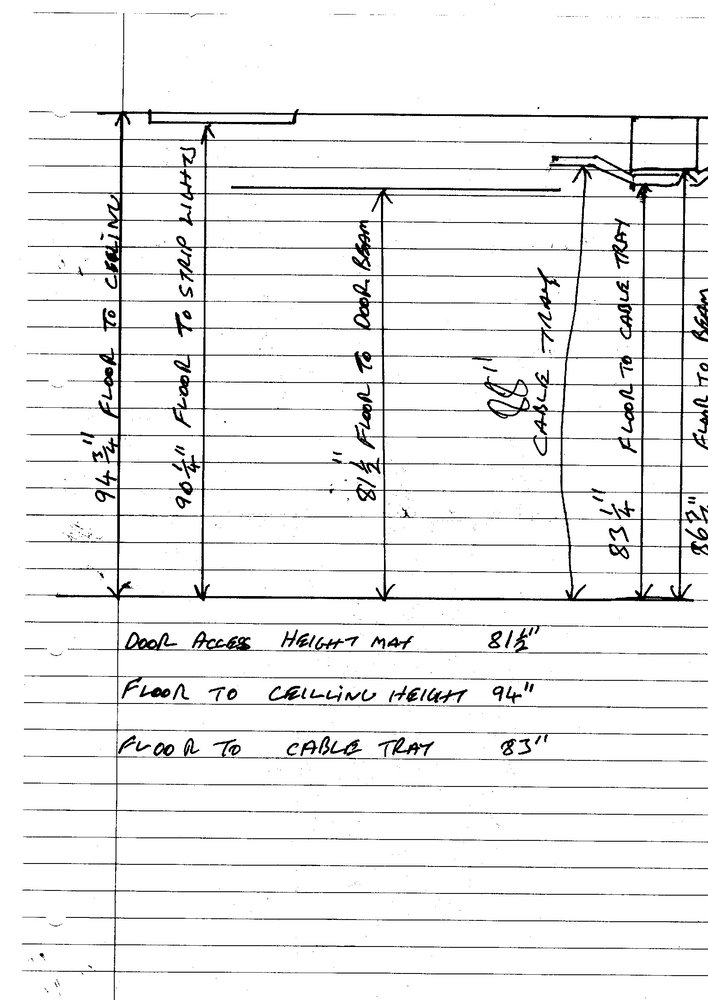 94 3/4" FLOOR TO CEELING
90 1/4" FLOOR TO STRIP LIGHTS
81 1/2" FLOOR TO DOOR BEAM
88"
CABLE TRAY
83 1/4" FLOOR TO CABLE TRAY
FLOOR TO BEAM
DOOR ACCESS HEIGHT MAX 81 1/2"
FLOOR TO CEILLING HEIGHT 94"
FLOOR TO CABLE TRAY 83"